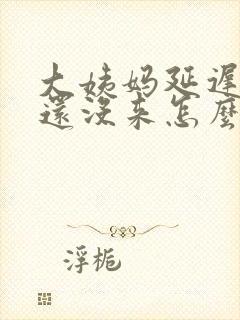 大姨妈延遲
還沒来怎麼
浮栀